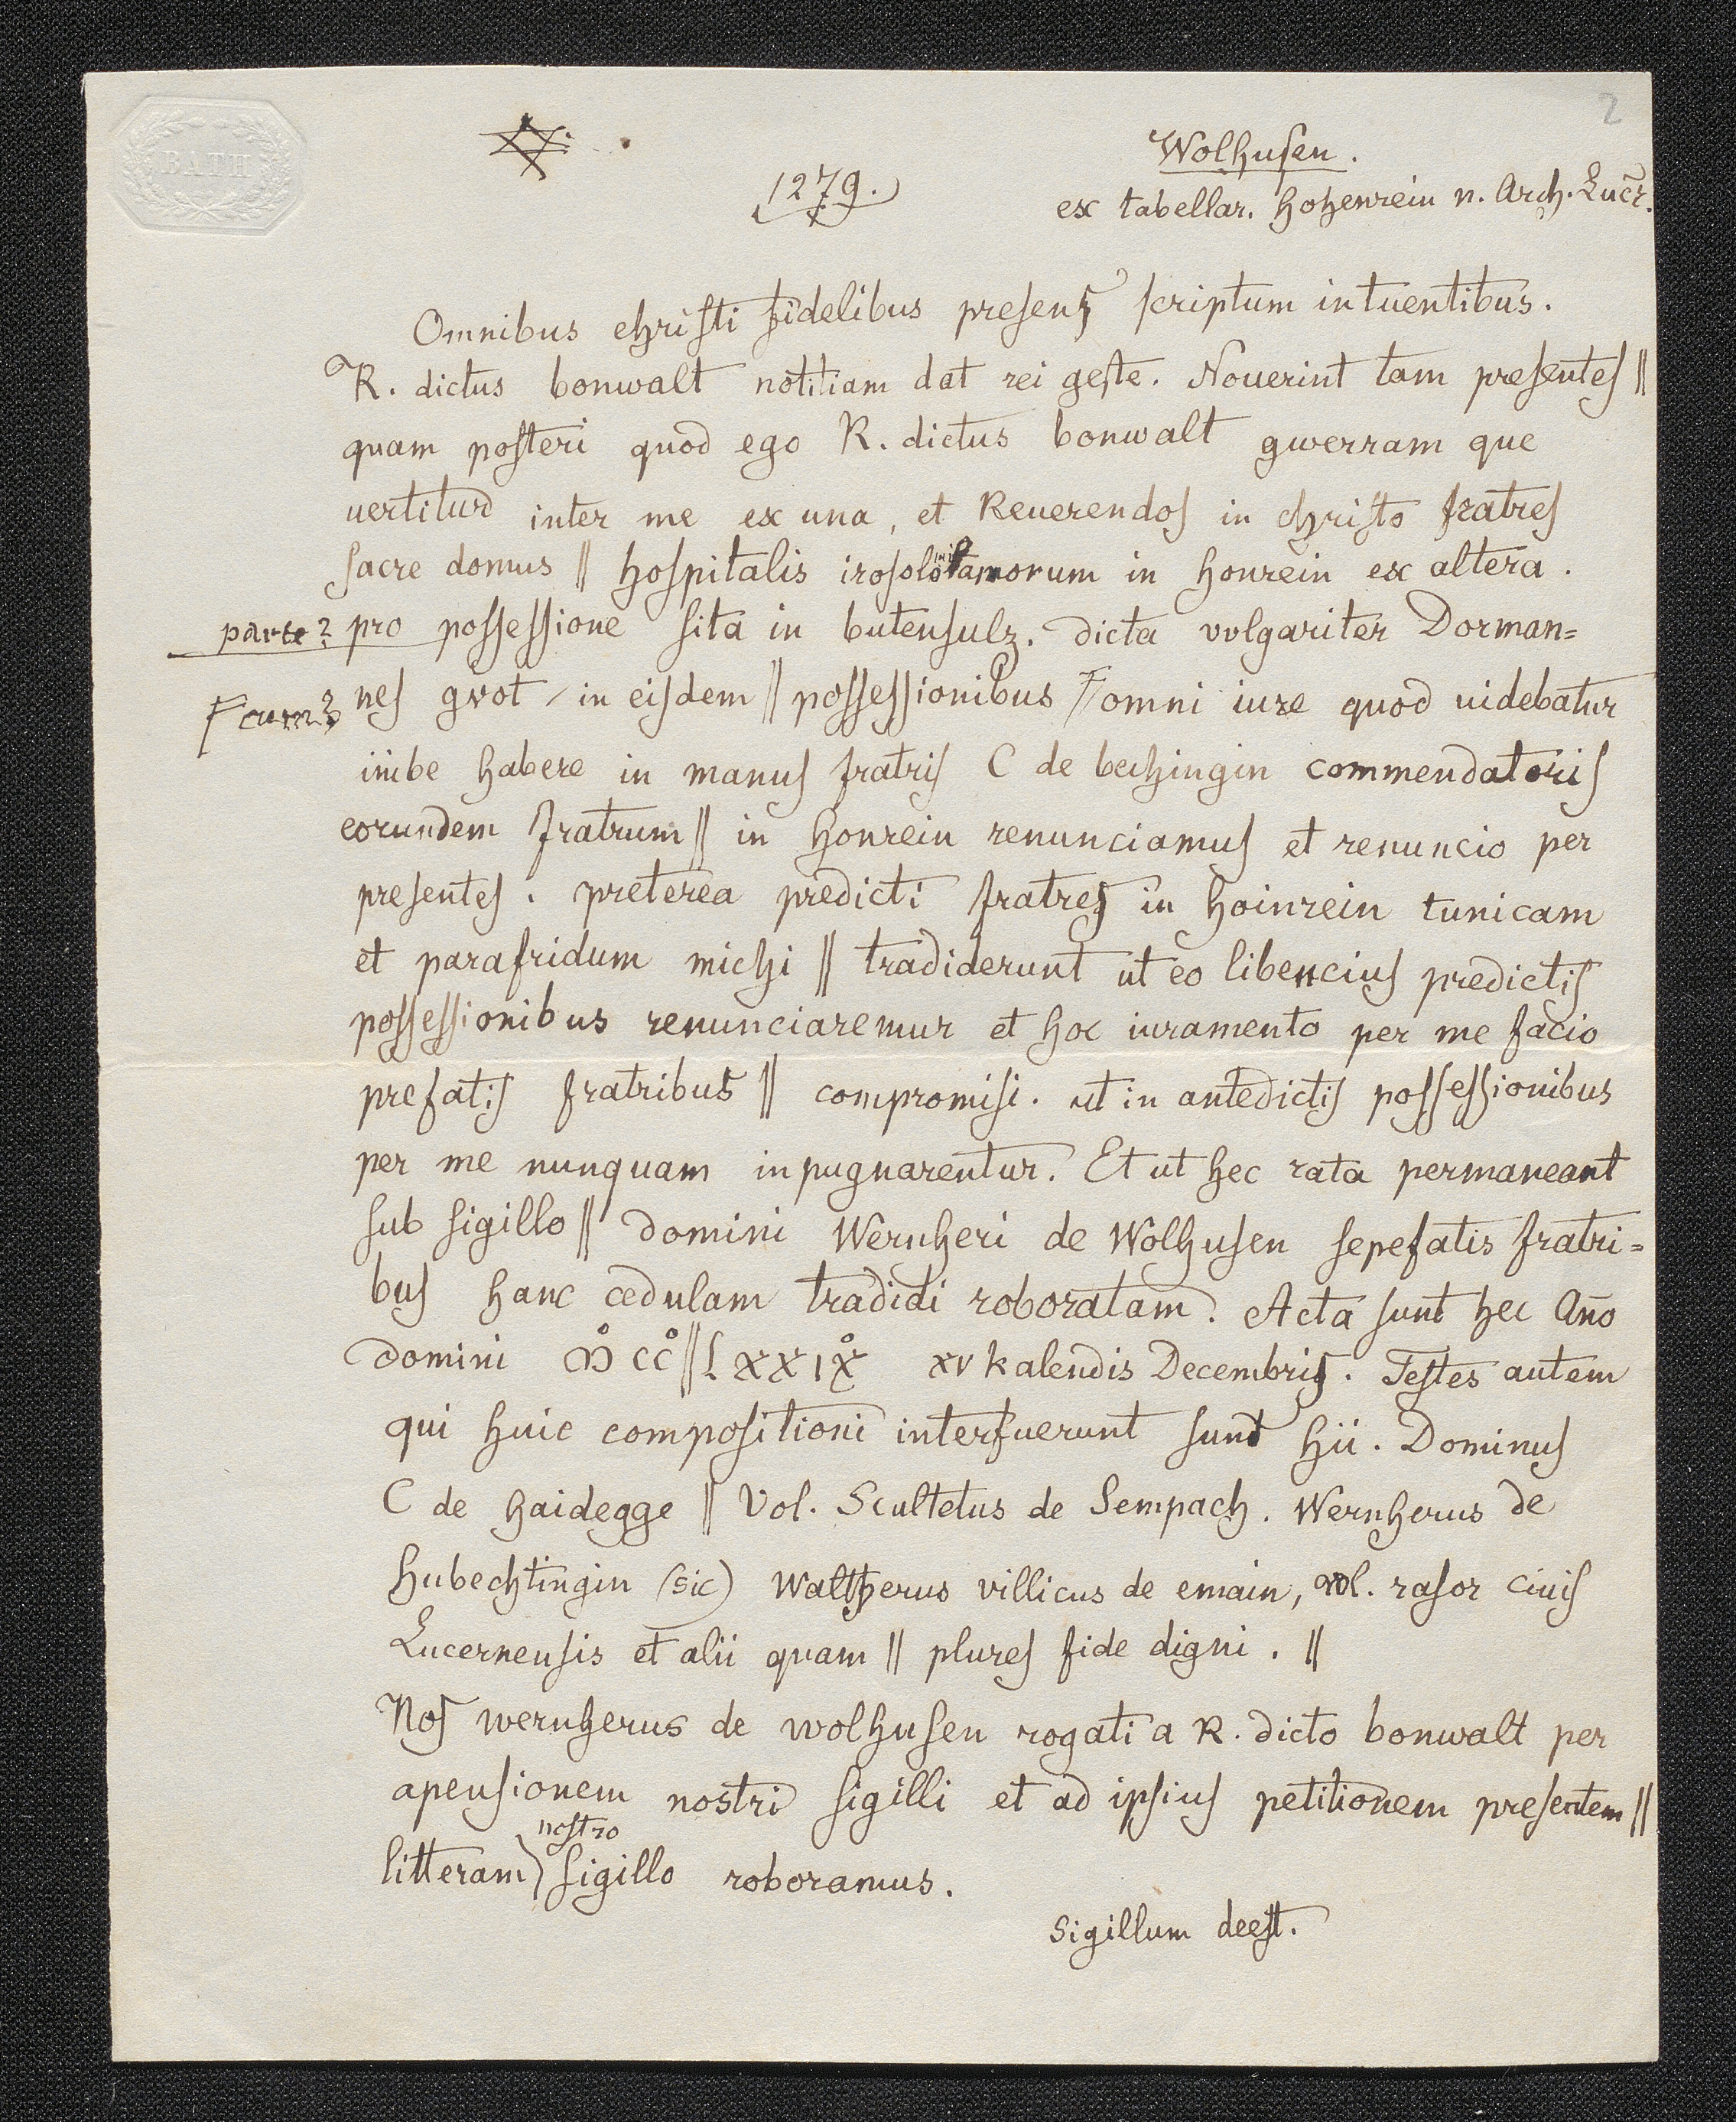 2
BATH
Wolhusen.
1279.
ex tabellar. Hohenrein n. Arch. Lucr.
Omnibus christi fidelibus presens scriptum intuentibus.
R. dictus bonwalt notitiam dat rei geste. Nouerint tam presentes ||
quam posteri quod ego R. dictus bonwalt gwerram que
uertitur inter me ex una, et Reuerendos in christo fratres
sacre domus || hospitalis in honrein ex altera.
parte? pro possessione sita in butensulz. dicta volgariter Dorman=
nes gvot / in eisdem || possessionibus F omni iure quod uidebatur
F cum?
habere in manus fratris C de bechingin commendatoris
eorundem fratrum || in honrein renunciamus et renuncio per
presentes. preterea predicti fratres in hoinrein tunicam
et parafridum michi || tradiderunt ut eo libencius predictis
possessionibus renunciaremur et hoc iuramento per me facio
prefatis fratribus || compromisi. ut in antedictis possessionibus
per me nunquam inpugnarentur. Et ut hec rata permaneant
sub sigillo || domini Wernheri de Wolhusen sepefatis fratri=
bus hanc cedulam tradidi roboratam. Acta sunt hec Año
domini M̊ CC̊ || LXXIX̊ XV kalendis Decembris. Testes autem
qui huic compositioni interfuerunt sunt hii. Dominus
C de haidegge || Vol. Scultetus de Sempach. Wernherus de
hubechtingin (sic) Waltherus villicus de emain, vol. rasor ciuis
Lucernensis et alii quam || plures fide digni. ||
Nos wernherus de wolhusen rogati a R. dicto bonwalt per
apensionem nostri sigilli et ad ipsius petitionem presentem ||
nostro
litteram sigillo roboramus.
Sigillum deest.